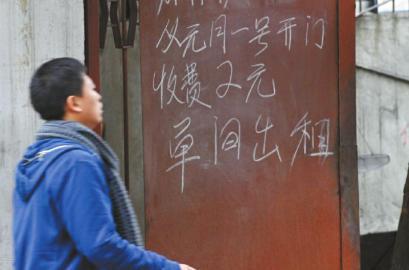 从元月一号开门
收费2元
单间出租